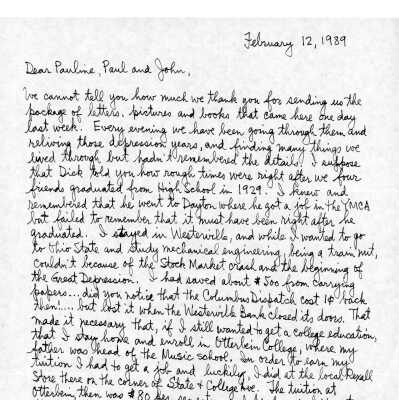 February 12, 1989
Dear Pauline, Paul and John,
We cannot tell you how much we thank you for sending us the
package of letters, pictures and books that came here one day
last week. Every evening we have been going through them and
reliving those depression years, and finding many things we
lived through but hadn't remembered the details. I suppose
that Dick told you how rough times were right after we four
friends graduated from High School in 1929. I knew and
remembered that he went to Dayton where he got a job in the YMCA
but failed to remember that it must have been right after he
graduated. I stayed in Westerville, and while I wanted to go
to Ohio State and study mechanical engineering, being a train nut,
couldn't because of the Stock Market crash and the beginning of
the Great Depression. I had saved about $500 from carrying
papers... did you notice that the Columbus Dispatch cost 1¢ back
then!... but lost it when the Westerville Bank closed its doors. That
made it necessary that, if I still wanted to get a college education,
that I stay home and enroll in Otterbein College, where my
father was head of the Music school. In order to earn my
tuition I had to get a job and luckily, I did at the local Rexall
Store there on the corner of State & College Ave. The tuition at
Otterbein then was $80 per